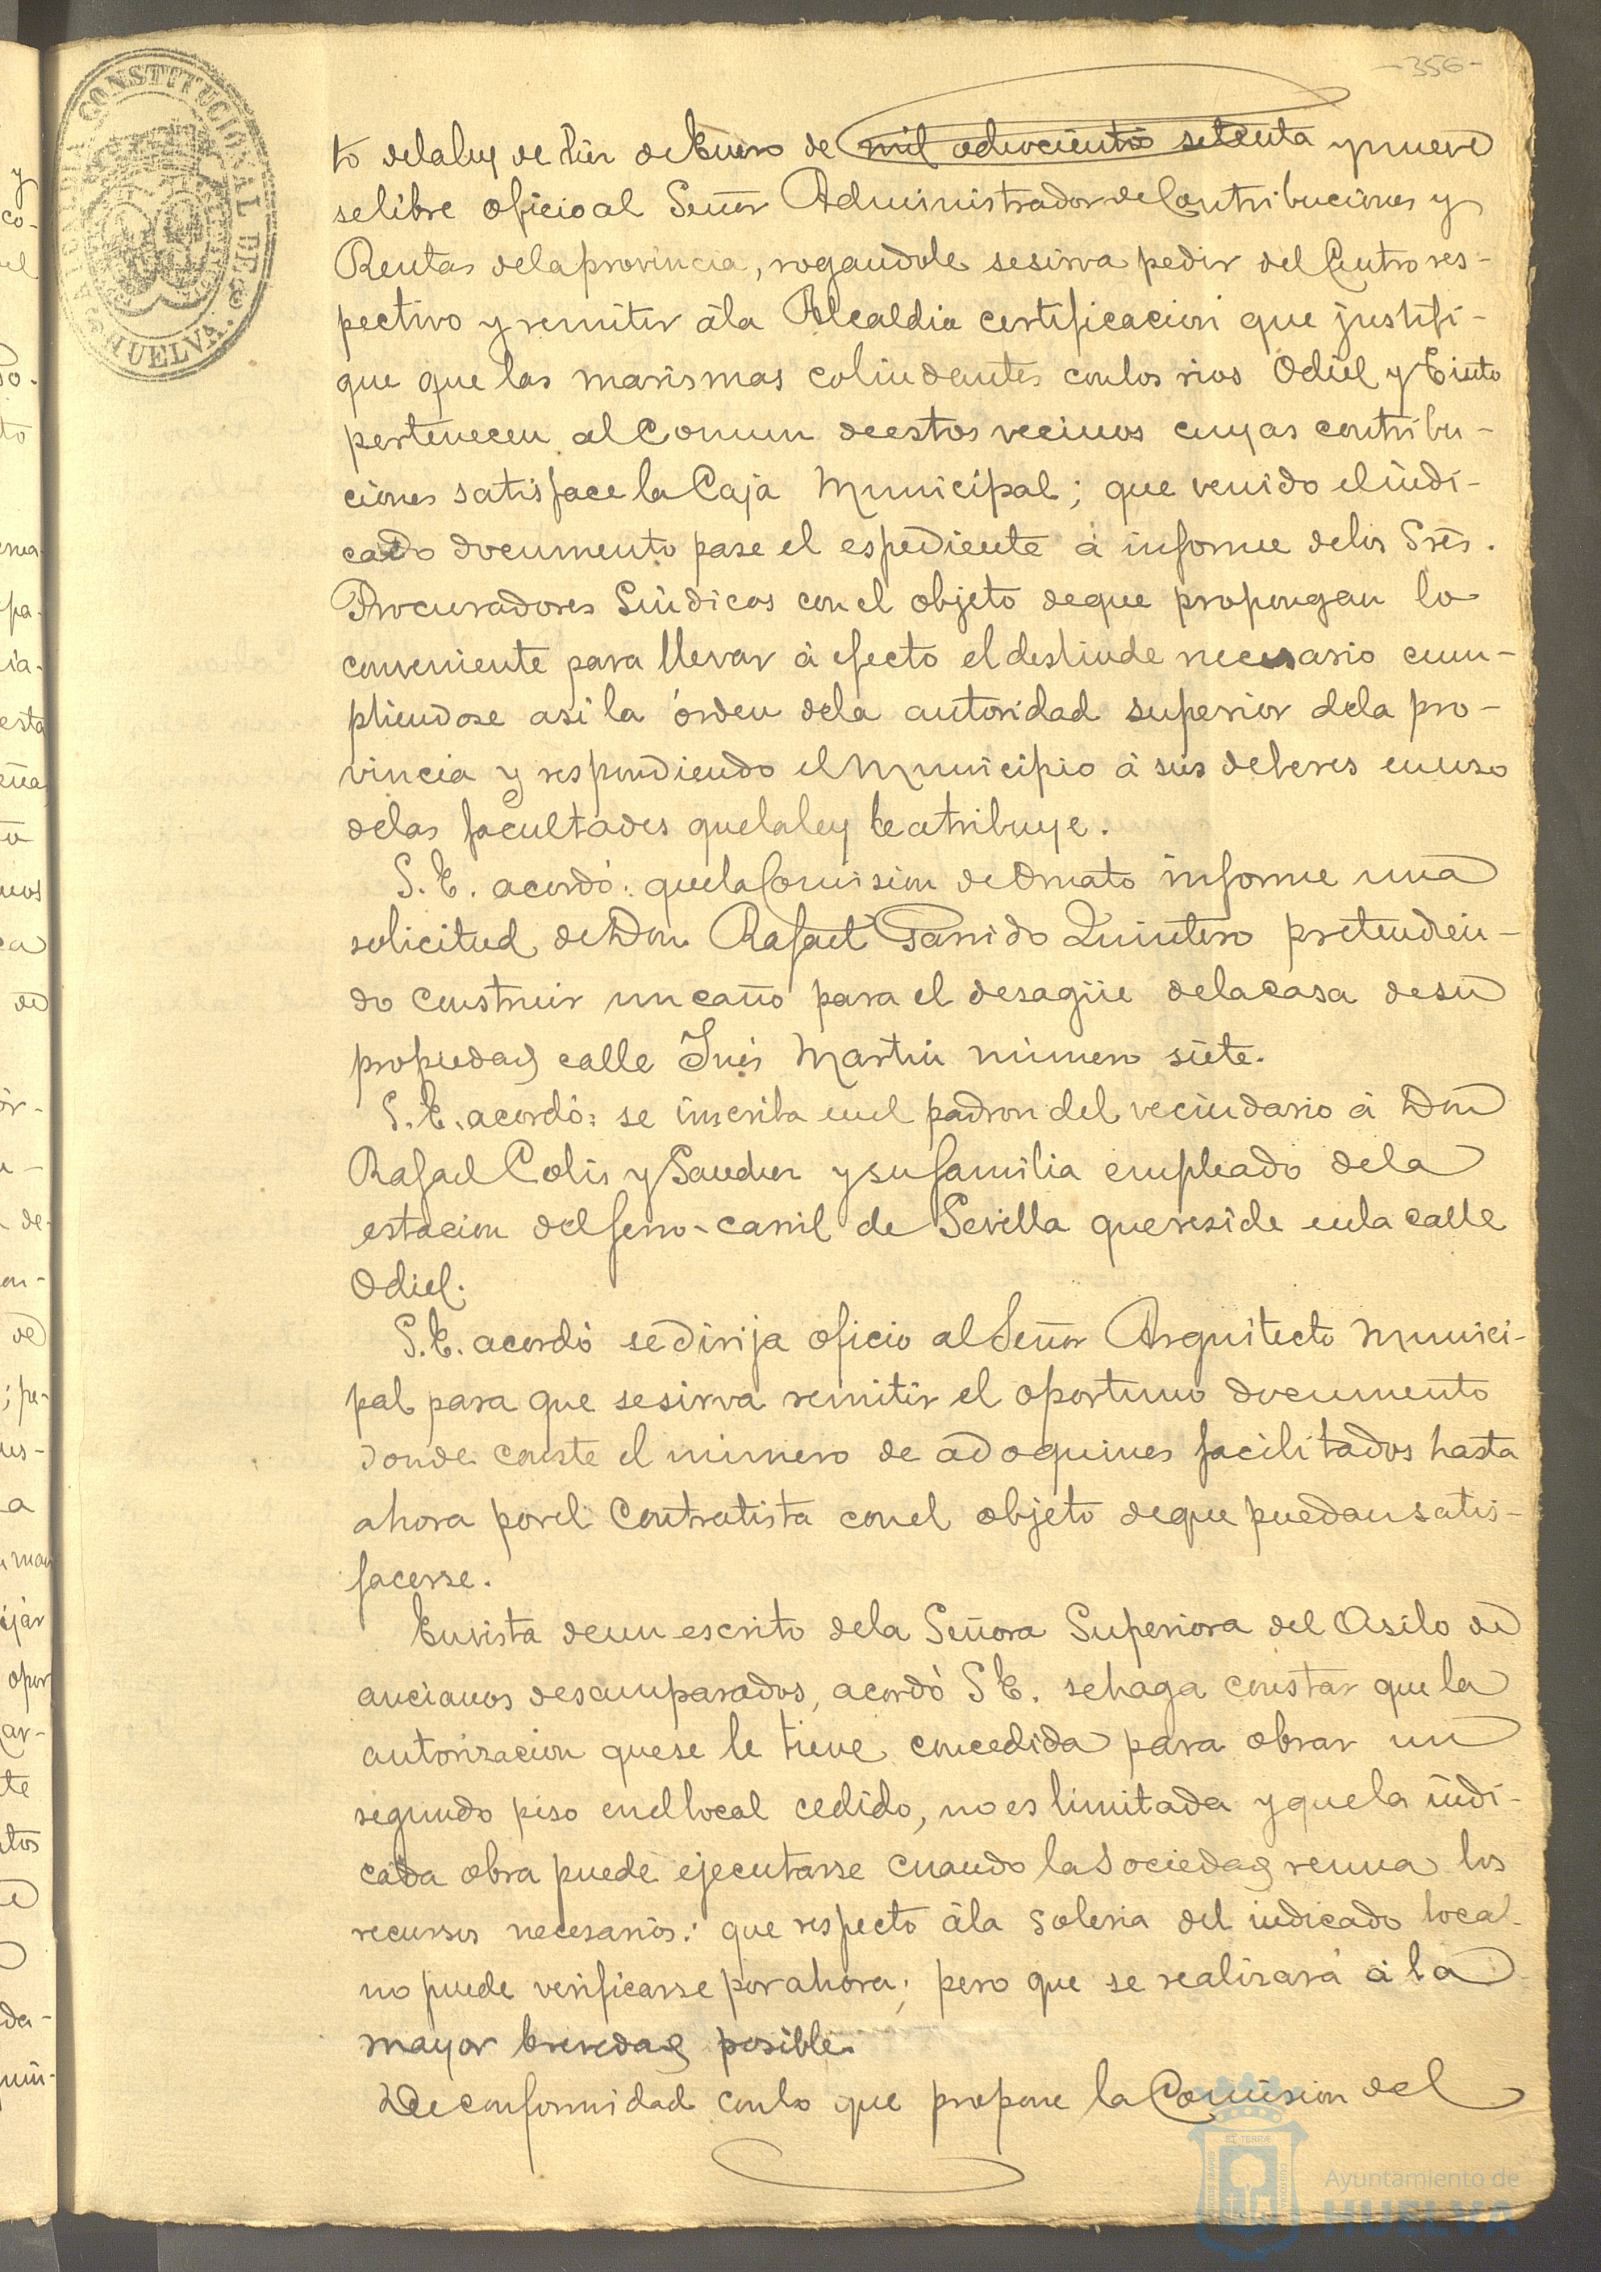 -356-
ALCALDIA CONSTITUCIONAL DE HUELVA.
to de la ley de diez de Enero de mil ochocientos setenta y nueve
se libre oficio al Señor Administrador de Contribuciones y
Rentas de la provincia, rogandole se sirva pedir del Centro res-
pectivo y remitir á la Alcaldia certificacion que justifi-
que que las marismas colindantes con los rios Odiel y Tinto
pertenecen al Comun de estos vecinos cuyas contribu-
ciones satisface la Caja Municipal; que venido el indi-
cado documento pase el espediente á informe de los Srēs.
Procuradores Sindicos con el objeto de que propongan lo
conveniente para llevar á efecto el deslinde necesario cum-
pliendose asi la órden de la autoridad superior de la pro-
vincia y respondiendo el Municipio á sus deberes en uso
de las facultades que la ley le atribuye.
S. E. acordó: que la Comision de Ornato informe una
solicitud de Don Rafael Garrido Quintero pretendien-
do construir un caño para el desagüe de la casa de su
propiedad calle Inés Martin número siete.
S. E. acordó: se inscriba en el padron del vecindario á Don
Rafael Colis y su familia empleado de la
estacion del ferro-carril de Sevilla que reside en la calle
Odiel.
S. E. acordó se dirija oficio al Señor Arquitecto Munici-
pal para que se sirva remitir el oportuno documento
donde conste el número de adoquines facilitados hasta
ahora por el Contratista con el objeto de que puedan satis-
facerse.
En vista de un escrito de la Señora Superiora del Asilo de
ancianos desamparados, acordó S E. se haga constar que la
autorizacion que se le tiene concedida para obrar un
segundo piso en el local cedido, no es limitada y que la indi-
cada obra puede ejecutarse cuando la Sociedad reuna los
recursos necesarios: que respecto á la soleria del indicado local
no puede verificarse por ahora; pero que se realizará á la
mayor brevedad posible.
De conformidad con lo que propone la Comision del
Ayuntamiento de
HUELVA